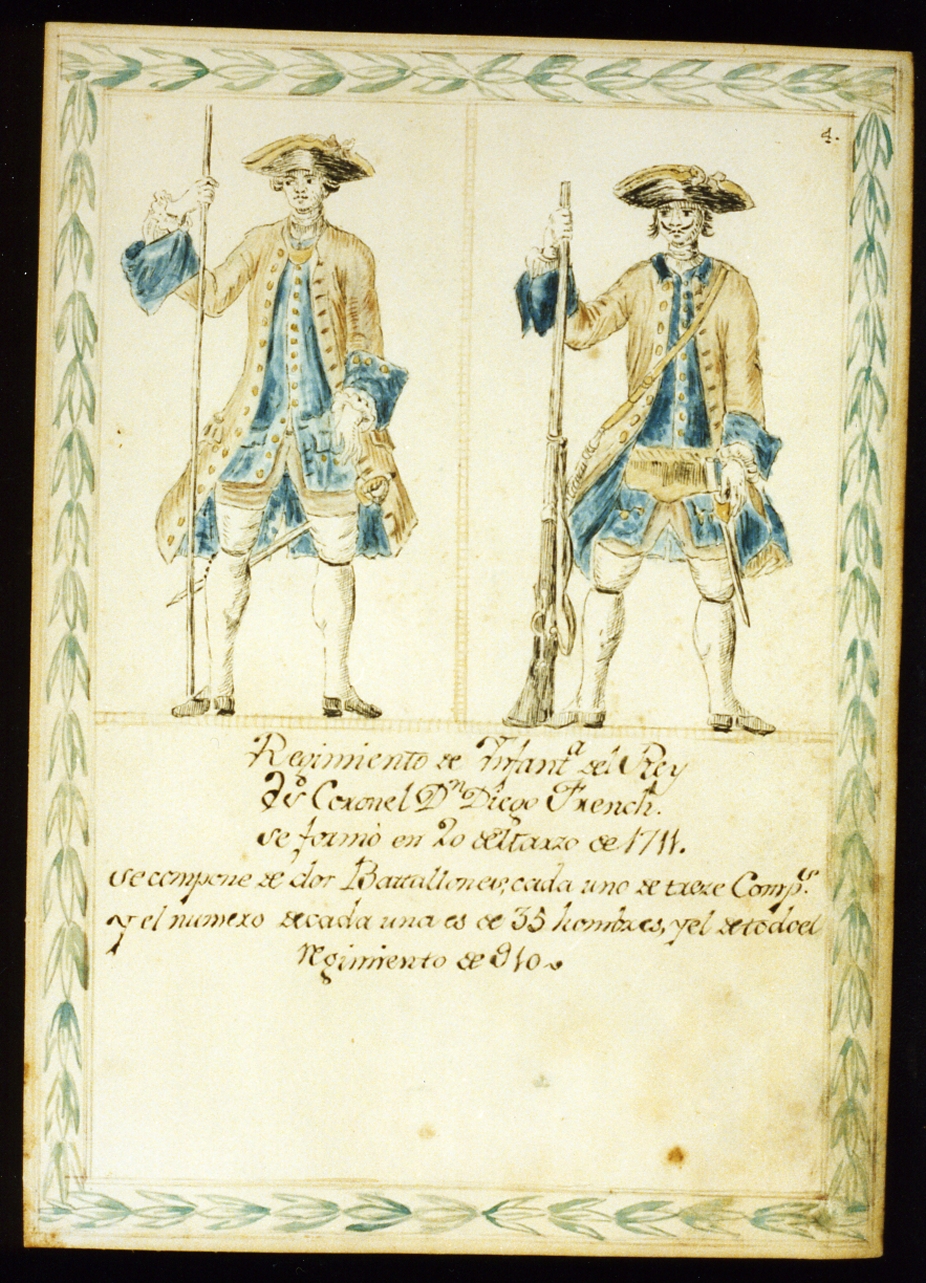 4.
Regimiento de Infant.ª del Rey
Su Coronel Dn Diego French.
se formò en 20 de Marzo de 1711.
se compone de dos Batallones, cada uno de treze Comp.s
y el numero de cada una es de 35 hombres, y el de todo el
regimiento de 910